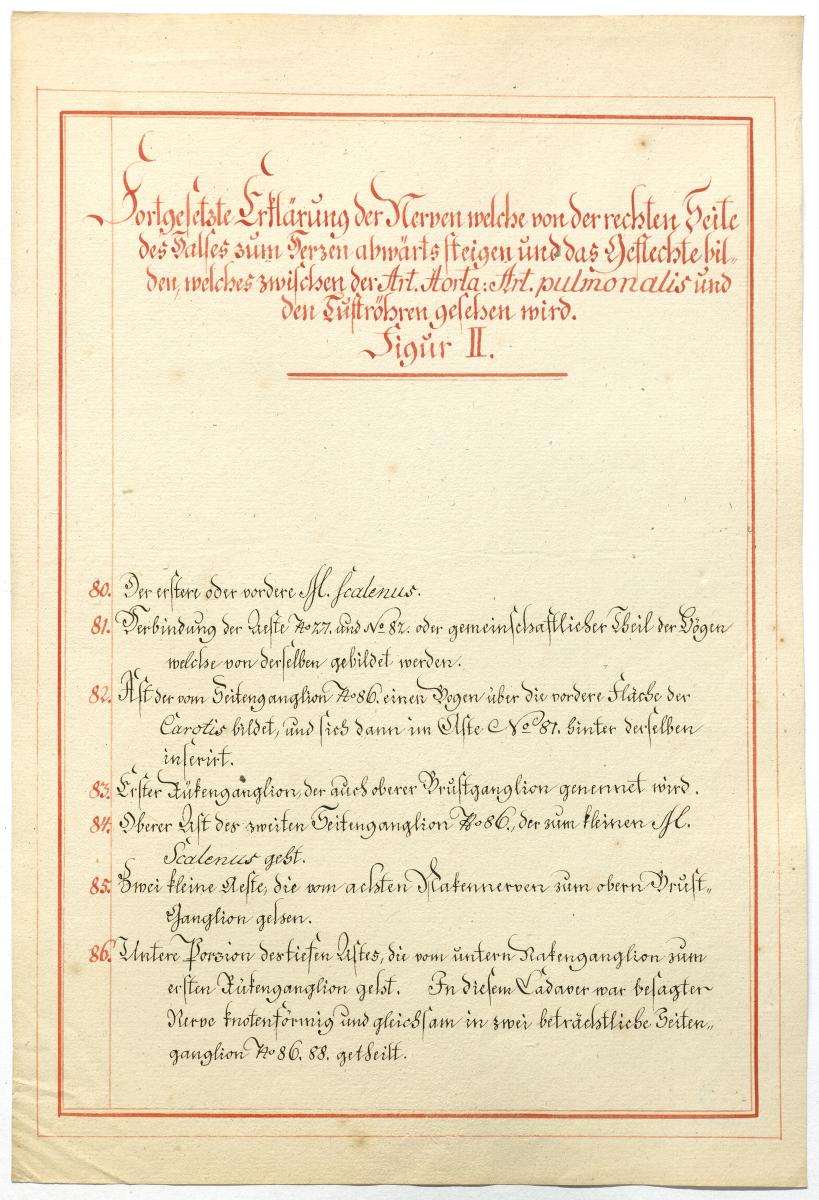 Fortgesetzte Erklärung der Nerven welche von der rechten Seite
des Halses zum Herzen abwärts steigen und das Geflechte bil-
den, welches zwischen der Art. Aorta: Art. pulmonalis und
den Luftröhren gesehen wird.
Figur II.
80. Der erstere oder vordere M. scalenus.
81. Verbindung der Aeste No 27. und No 82. oder gemeinschaftlicher Theil der Bögen
welche von derselben gebildet werden.
82. Ast der vom Seitenganglion No 86. einen Bogen über die vordere Fläche der
Carotis bildet, und sich dann im Aste No 81. hinter derselben
inserirt.
83. Erster Rükenganglion, der auch oberer Brustganglion genennet wird.
84. Oberer Ast des zweiten Seitenganglion No 86., der zum kleinen M.
Scalenus geht.
85. Zwei kleine Aeste, die vom achten Nakennerven zum obern Brust-
Ganglion gehen.
86. Untere Porzion des tiefen Astes, die vom untern Nakenganglion zum
ersten Rükenganglion geht. In diesem Cadaver war besagter
Nerve knotenförmig und gleichsam in zwei beträchtliche Seiten-
ganglion No 86. 88. getheilt.